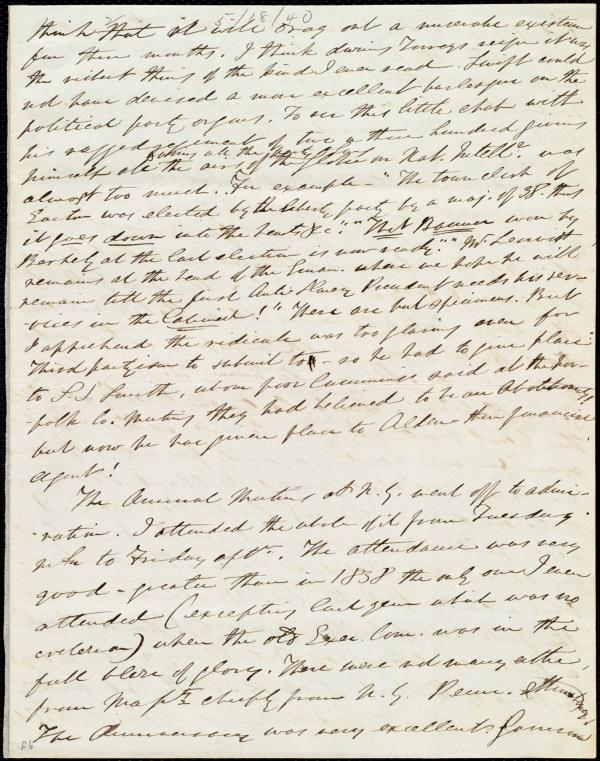 5-/18/40
think that it will drag out a miserable existence
for three months. I think during Torrey's reign it was
the richest thing of the kind I ever read. Swift could
not have devised a more excellent burlesque on the
political party organs. To see this little chat with
his ragged regiment of two or three hundred giving
himself all the airs of the Globe or Nat. Intell.r was
almost too much. For example - "The town clerk of
Easton was elected by the liberty party by a maj. of 38. thus
it goes down into the hearts &c." "The Banner won by
at the last election is now ready." "Mr Leavitt
remains at the head of the Eman. where we hope he will
remain till the first Anti Slavery President needs his ser-
-vices in the Cabinet!" These are but specimens. But
I apprehend the ridicule was too glaring even for
Third partyism to submit to - so he had to give place
to S. S. Smith, whom poor Cummings said at the Nor-
-folk Co. Meeting they had believed to be an Abolitionist,
but now he has given place to Alden their financial
agent!
The Annual Meeting at N.Y. went off to admi-
-ration. I attended the whole of it from Tuesday
to Friday aftn. The attendance was very
good - greater than in 1838 the only one I ever
attended (excepting last year which was no
criterion) when the old Exec. Com. was in the
full blaze of glory. There were not many either
from Mass.ts chiefly from N.Y. Penn.
The Anniversary was very excellent. Garrison
26